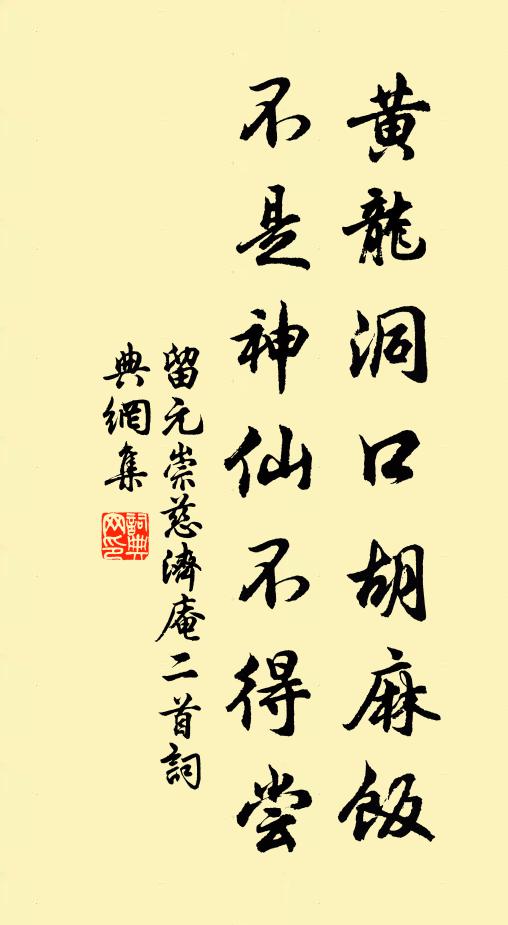 黄龍洞口胡麻飯
不是神仙不得尝
留元崇慈濟庵二首詞
典網集
詞典
网印